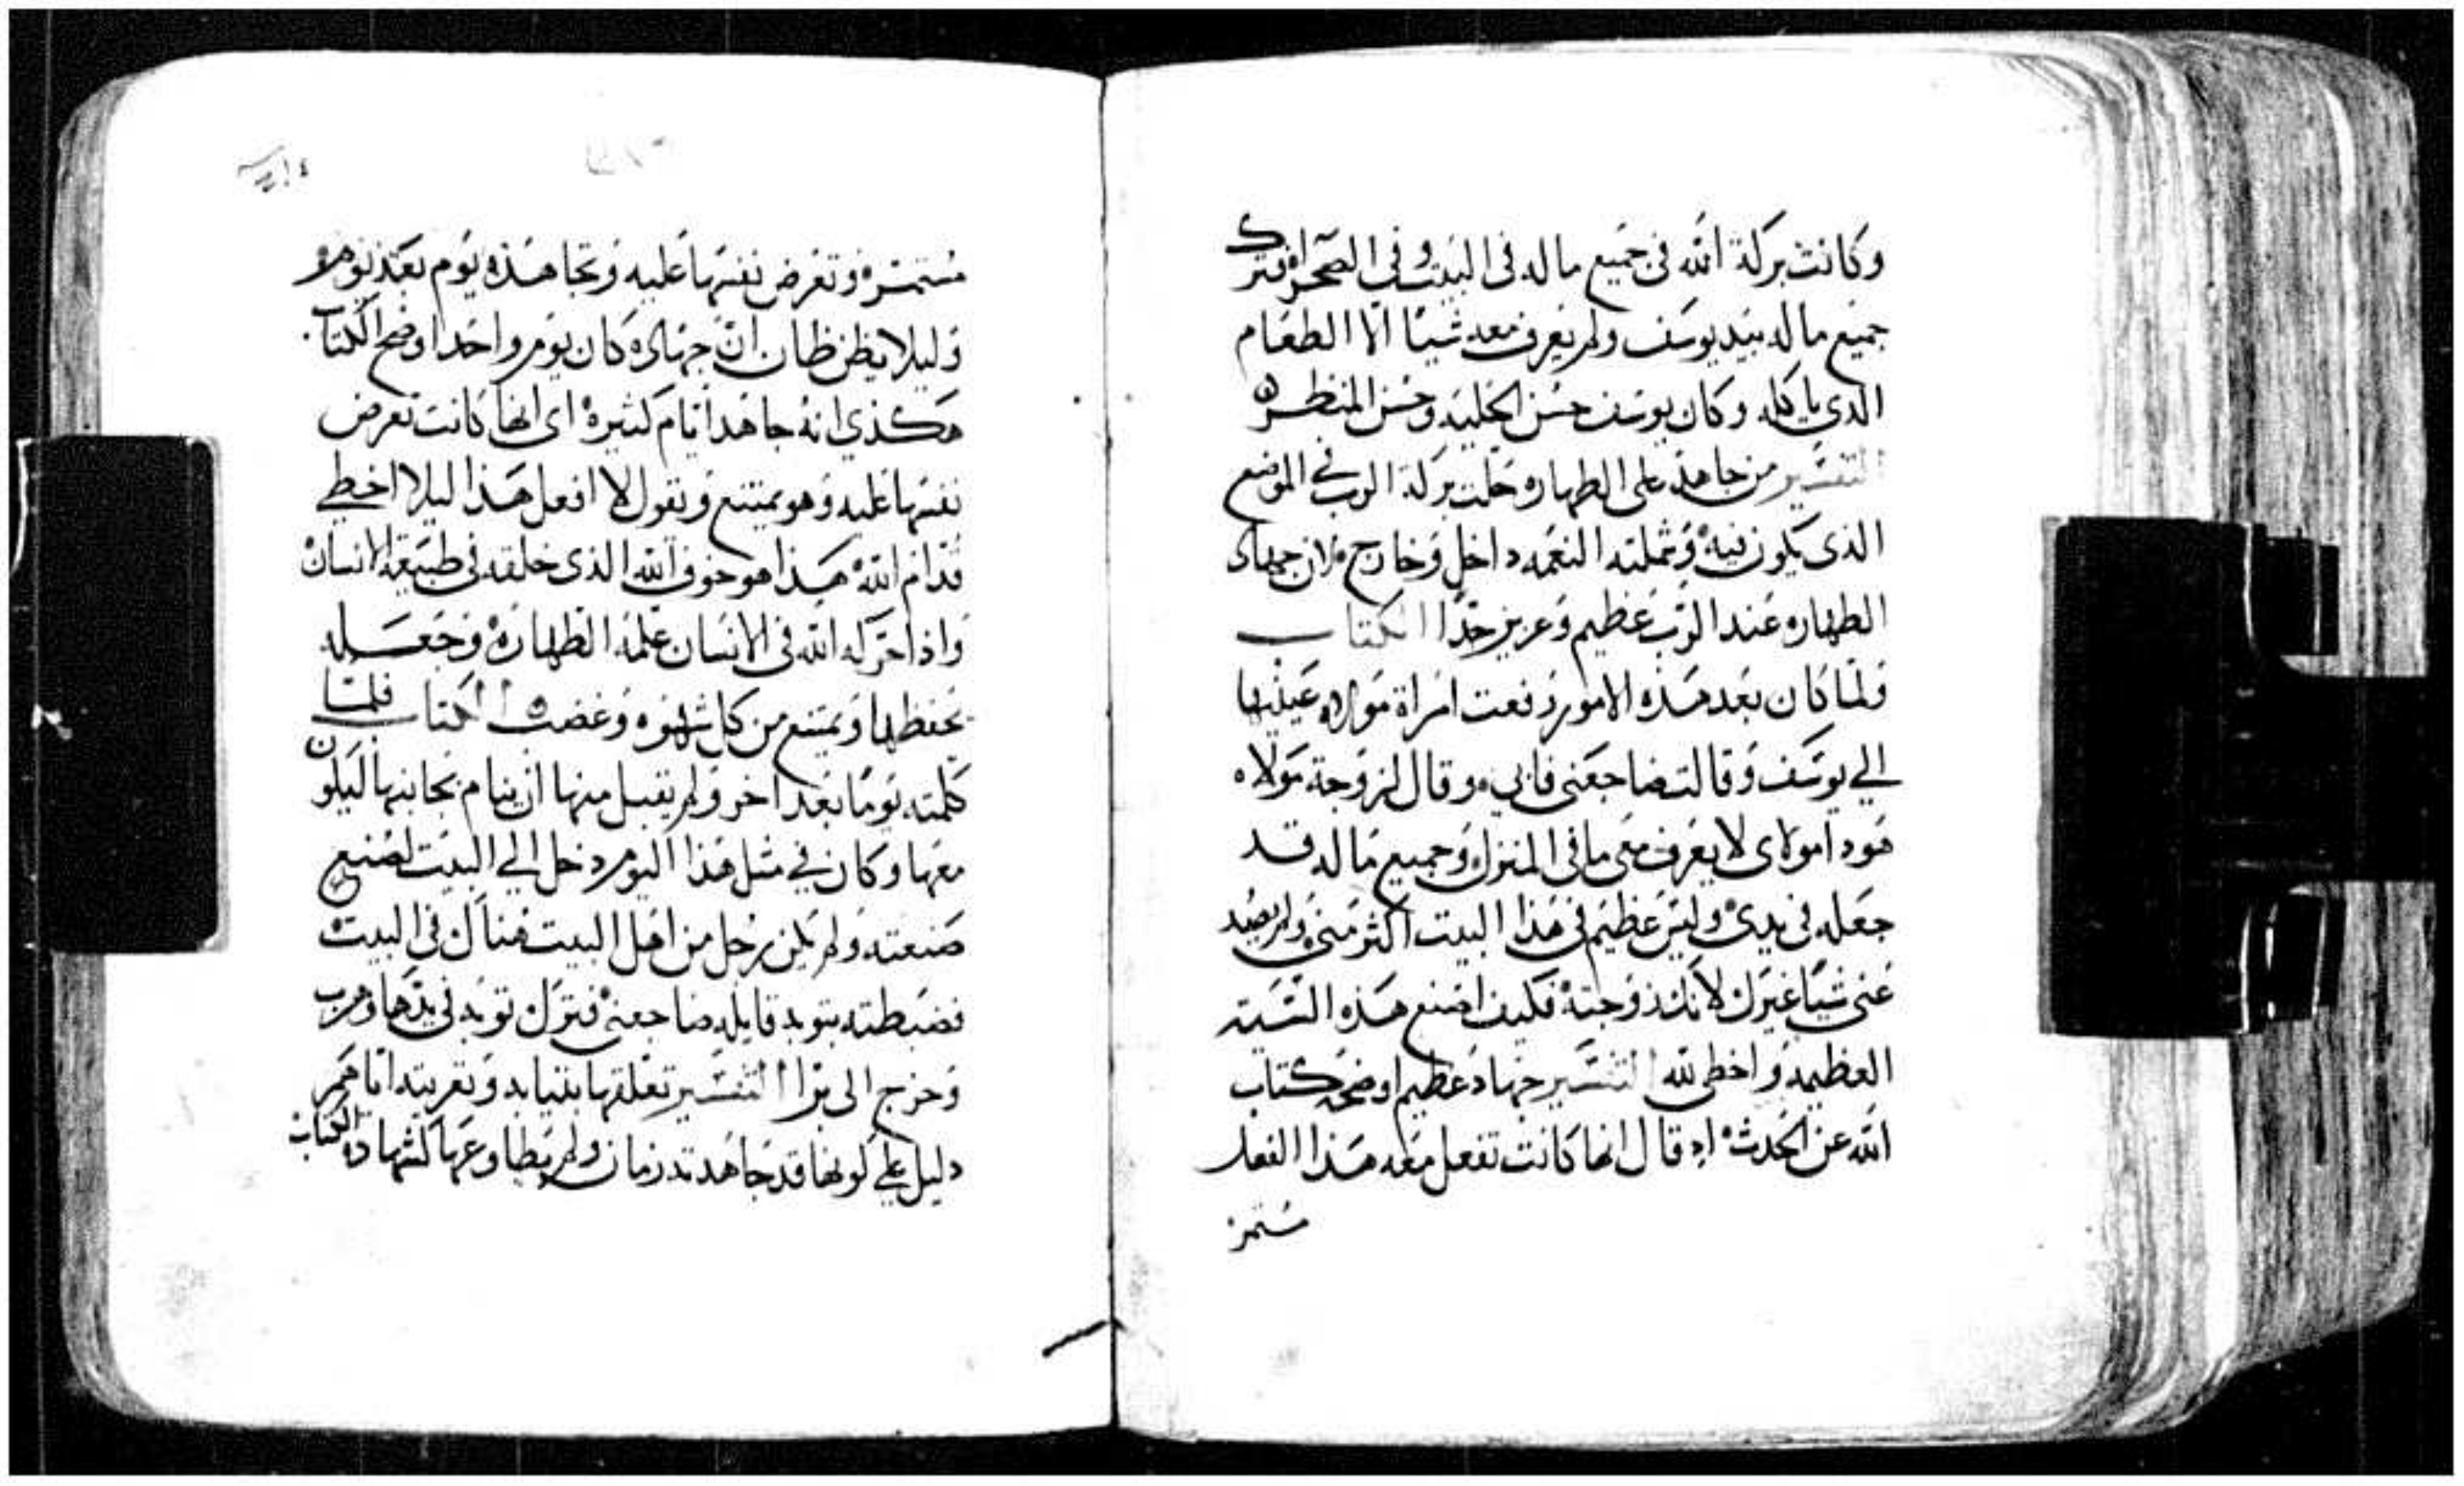 وكانت بركة الله في جميع ماله في البيت وفي الصحراه فترك
جميع ماله بيد يوسف ولم يعرف معه شيا الا الطعام
الدي ياكله وكان يوسف حسن الحليه وحسن المنظر
التفسير من جاهد على الطهاره حلت بركة الرب في الموضع
الذى يكون فيه وشملته النعمه داخل وخارج لان جهاد
الطهاره عند الرب عظيم وعزيز جدا الكتاب
ولما كان بعد هذه الامور رفعت امراة مولاه عينيها
الي يوسف وقالت ضاجعني فابي وقال لزوجة مولاه
هودا مولاى لا يعرف معى ما في المنزل وجميع ماله قد
جعله في يدى وليس عظيم في هذا البيت اكثر منى ولم يصد
عنى شيا غيرك لانك زوجته فكيف اصنع هذه السيه
العظيمه واخطى لله التفسير جهاد عظيم اوضحه كتاب
الله عن الحدث اد قال انها كانت تفعل معه هذا الفعل
مستمر
مستمره وتعرض نفسها عليه وتجاهده يوم بعد يوم
وليلا يظن ظان ان جهاده كان يوم واحد اوضح الكتاب
هكذي انه جاهد ايام كثيره اى انها كانت تعرض
نفسها عليه وهو يمتنع ويقول لا افعل هذا ليلا اخطي
قدام الله هذا هو خوف الله الذى خلقه في طبيعة الانسان
واذا تحركه الله في الانسان علمه الطهاره وجعله
يحفظها ويمتنع من كل شهوه وغضب الكتاب فلما
كلمته يوما بعد اخر ولم يقبل منها ان ينام بجانبها ليكون
معها وكان في مثل هذا اليوم دخل الي البيت ليصنع
صنعته ولم يكن رجل من اهل البيت هناك في البيت
فضبطته بثوبه قايله ضاجعنى فترك ثوبه في يدها وهرب
وخرج الى برا التفسير تعلقها بثيابه وتعريته اياهم
دليل على كونها قد جاهدته زمان ولم يطاوعها كشهادة الكتاب